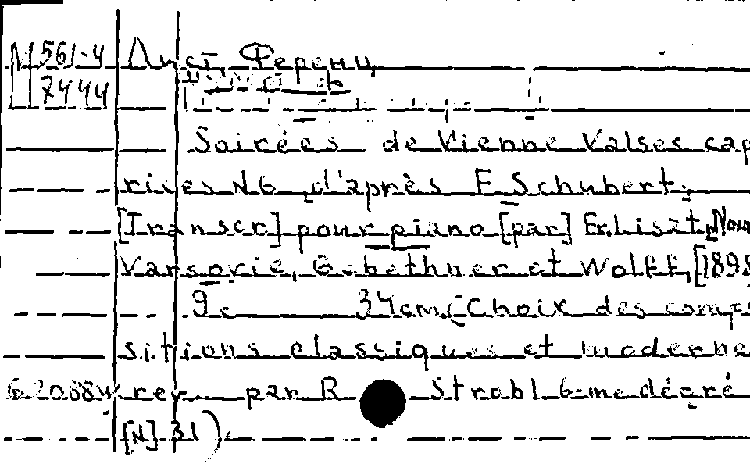 М 561-4 Лист, Ференц
7444
Soirées de Vienne Valses cap
rices N6 d'après F. Schubert.
[Transcr] pour piano [par] Fr. Liszt,
Varsovie, Gebethner et Wolff, [1898
9c 34cm (Choix des compo
sitions classiques et moderne
rev. par R Strobl 6-me degré
[N] 31).